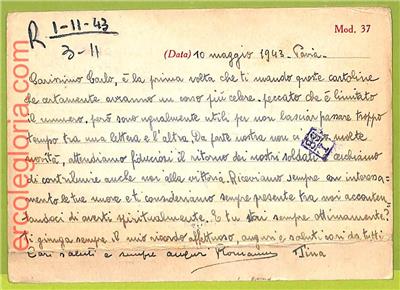 R 1-11-43
3-11
Mod. 37
(Data) 10 maggio 1943. Pavia.
Carissimo Carlo, è la prima volta che ti mando queste cartoline
che certamente avranno un corso più celere. peccato che è limitato
il numero, però sono ugualmente utili per non lasciar passare troppo
tempo tra una lettera e l'altra. Da parte nostra non molte
novità, attendiamo fiduciosi il ritorno dei nostri soldati e cerchiamo
di contribuire anche noi alla vittoria. Riceviamo sempre con interessa-
mento le tue nuove e ti consideriamo sempre presente tra noi acconten-
tandoci di averti spiritualmente. E tu stai sempre ottimamente?
Ti giunga sempre il mio ricordo affettuoso, auguri e saluti cari da tutti
Cari saluti e sempre auguri Tina
ercolegloria.com